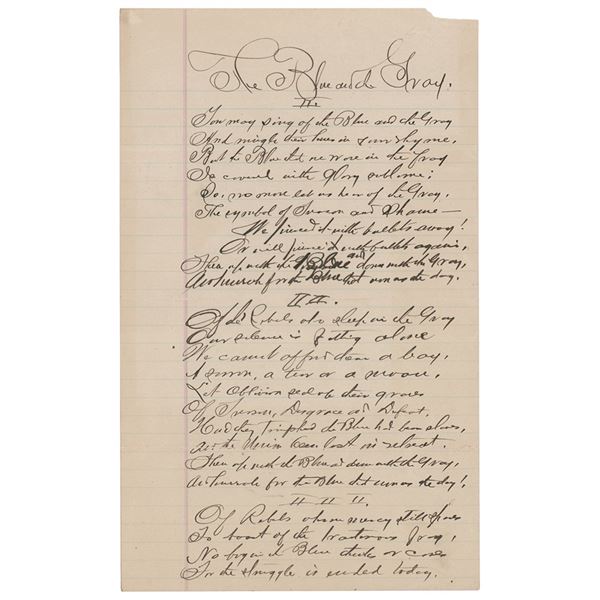 The Blue and the Gray.
I te.
You may sing of the Blue and the Gray
And mingle their hues in your rhyme,
But the Blue that we wore in the fray
Is covered with Glory sublime;
So, no more let us hear of the Gray,
The symbol of Treason and Shame—
We pierced it with bullets away!
Or will pierce it with bullets again,
Then up with the Blue and down with the Gray,
And hurrah for the Blue that won us the day.
II th.
Of the Rebels who sleep in the Gray
Our silence is fitting alone
We cannot afford them a bay,
A sorrow, a tear or a moan,
Let Oblivion seal up their graves
Of Treason, Disgrace and Defeat,
Had they Triumphed the Blue had been slaves,
And the Union been lost in retreat.
Then up with the Blue and down with the Gray,
And hurrah for the Blue that won us the day!
III.
Of Rebels whom mercy still spares
To boast of the traitorous fray,
No boy in Blue thinks or cares
For the struggle is ended today.